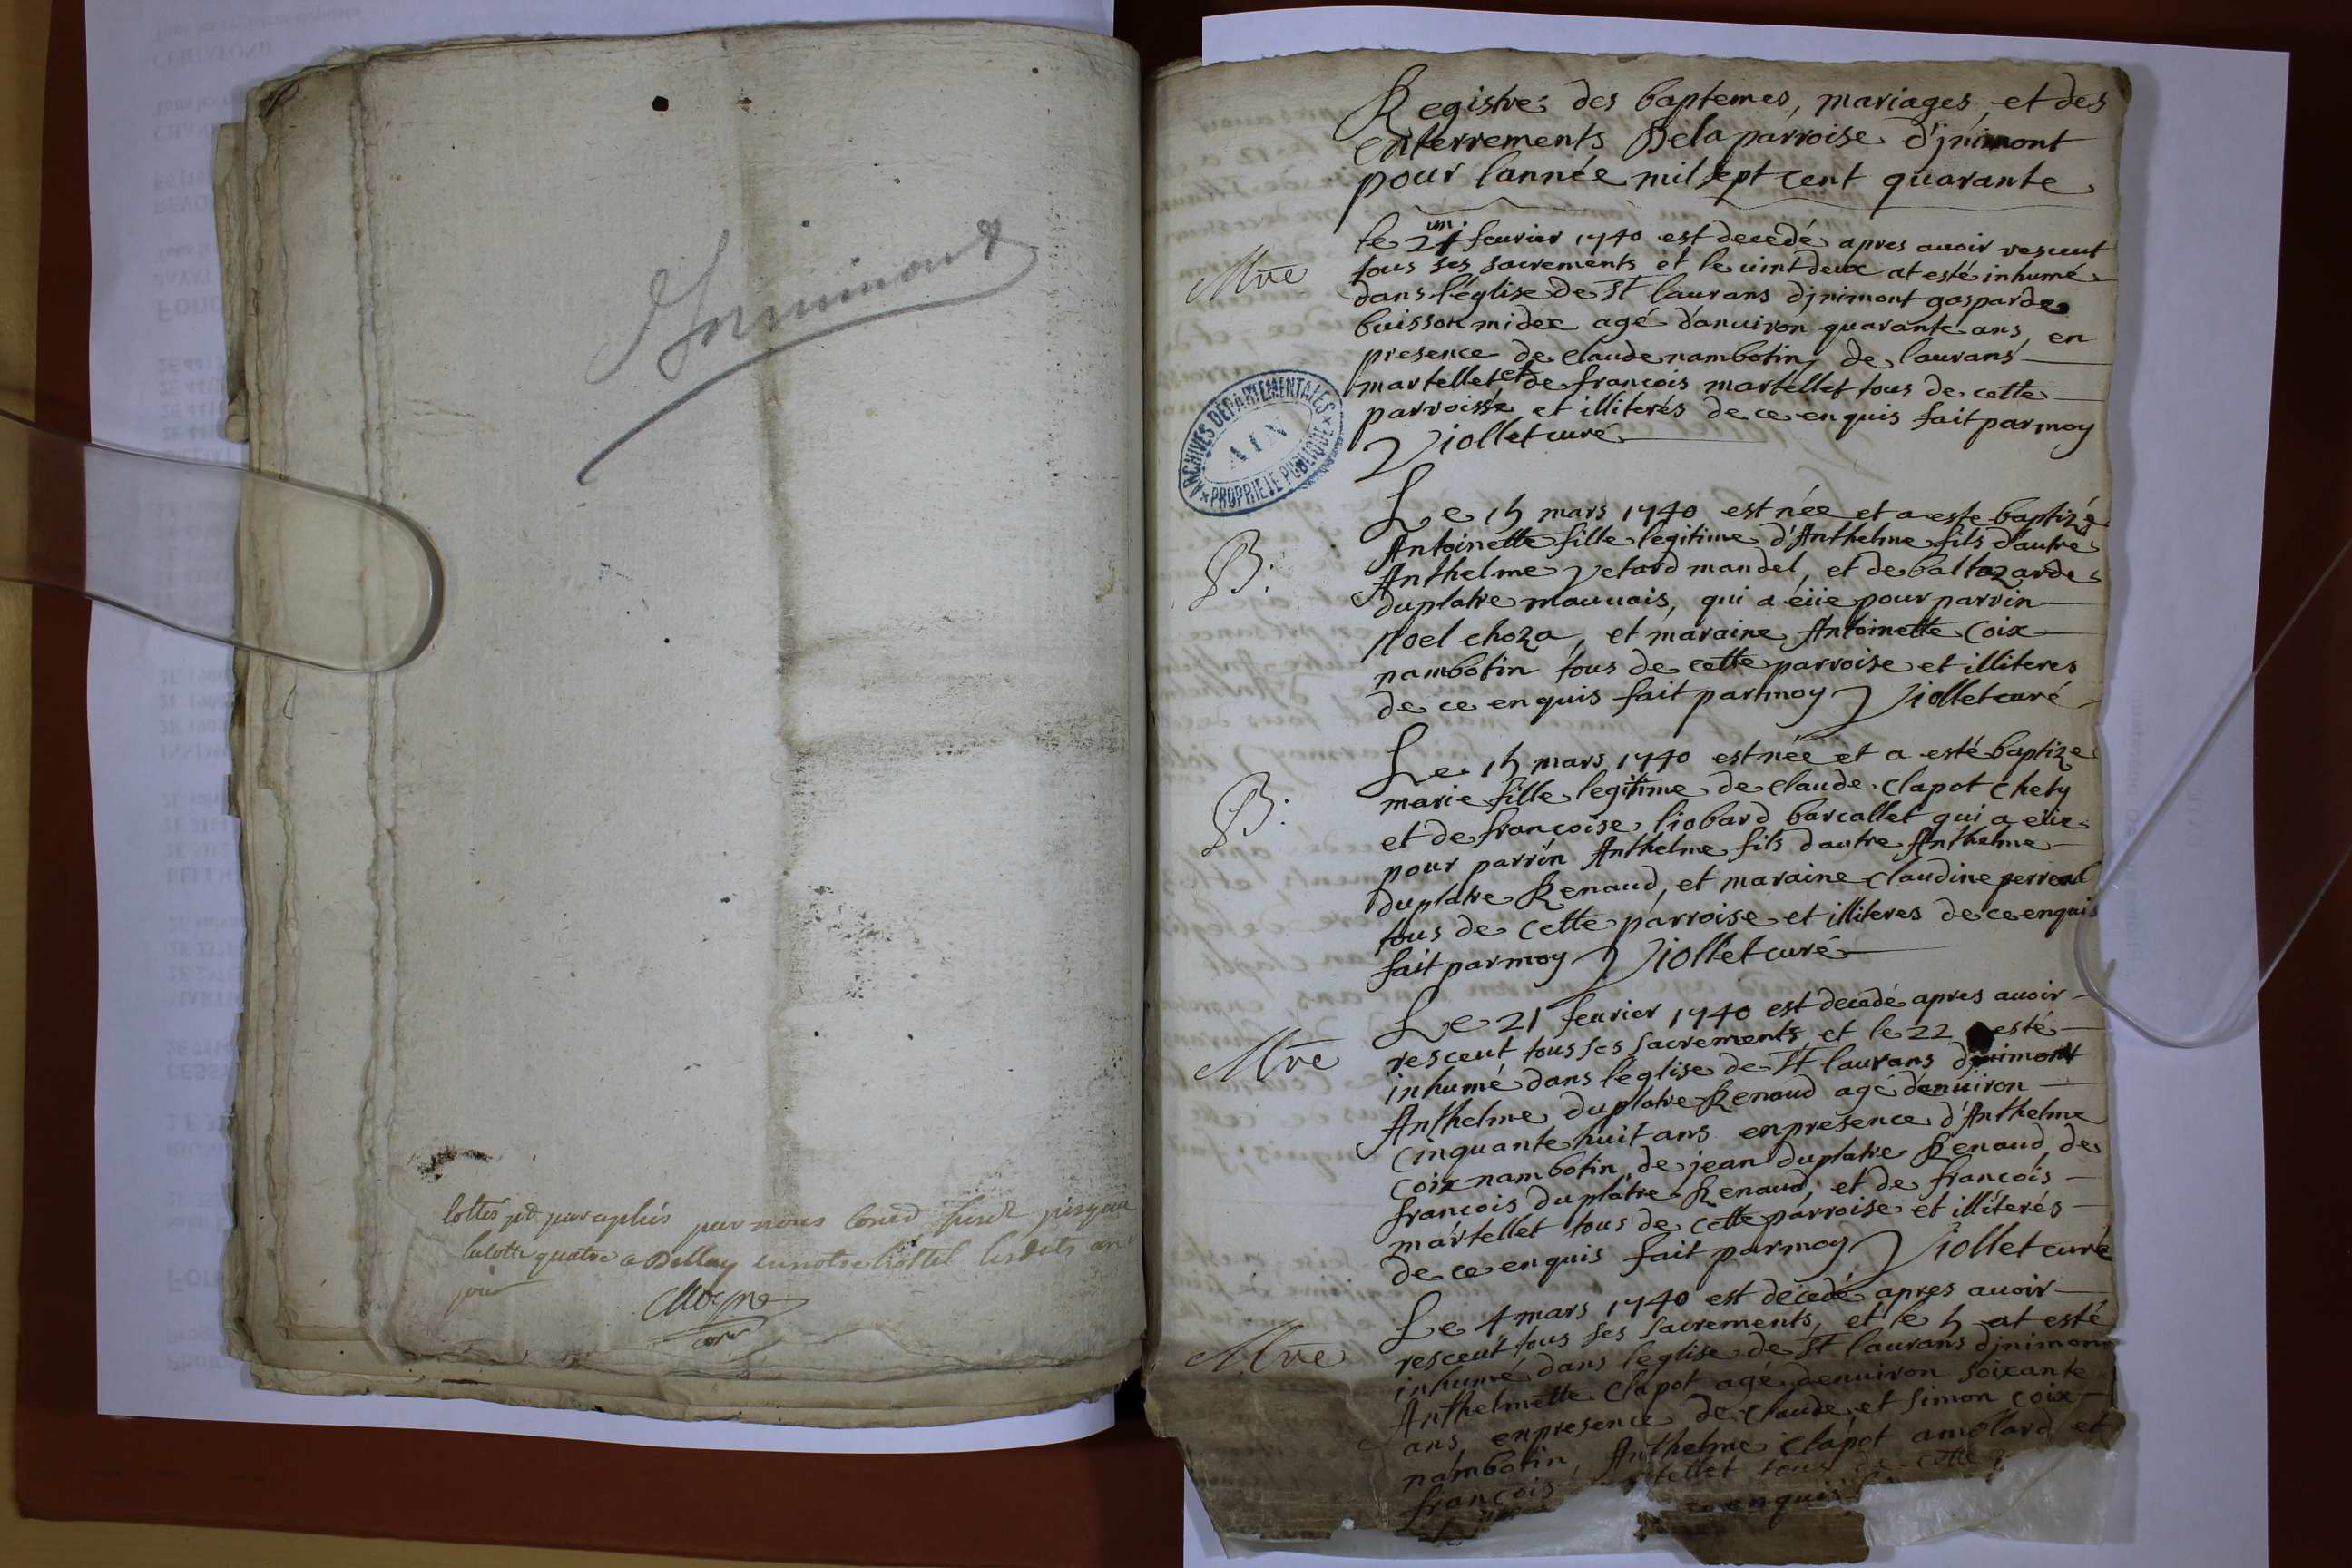 d'Innimont
cottés et paraphés par nous
la cotte quatre a Bellay en notre hottel lesdits an
jour
Registre des baptemes, mariages, et des
enterrements de la parroise d'jnimont
pour l'année mil sept cent quarante
Mre
le 21 feurier 1740 est decedé apres auoir resceut
tous ses sacrements et le uint deux at esté inhumé
dans l'église de St laurans djnimont gasparde
buisson midex agé d'anuiron quarante ans en
presence de claude nambotin de laurans
martellet et de francois martellet tous de cette
parroisse et illiterés de ce enquis fait par moy
Viollet curé
ARCHIVES DÉPARTEMENTALES
AIN
PROPRIÉTÉ PUBLIQUE
B:
Le 15 mars 1740 est née et a esté baptizé
Antoinette fille legitime d'Anthelme fils d'autre
Anthelme Vetard mandel, et de baltazarde
duplatre mauuais, qui a eüe pour parrin
noel choza, et maraine Antoinette Coix
nambotin tous de cette parroise et illiteres
de ce enquis fait par moy Viollet curé
B:
Le 15 mars 1740 est née et a esté baptize
marie fille legitime de claude Clapot Chety
et de françoise liobard barcallet qui a eüe
pour parrin Anthelme fils dautre Anthelme
duplatre Renaud, et maraine Claudine perreal
tous de cette parroise et illiteres de ce enquis
fait par moy Viollet curé
Mre
Le 21 feurier 1740 est decedé apres auoir
resceut tous ses sacrements, et le 22 esté
inhumé dans l'eglise de St laurans djnimont
Anthelme duplatre Renaud agé denuiron
Cinquante huit ans en presence d'Anthelme
Coix nambotin, de jean duplatre Renaud, de
francois duplatre Renaud, et de francois
martellet tous de cette parroise et illiterés
de ce enquis fait par moy Viollet curé
Mre
Le 4 mars 1740 est decedé apres auoir
resceut tous ses sacrements, et le 5 at esté
inhumé dans l'eglise de St laurans djnimont
Anthelmette Clapot agé denuiron soixante
ans en presence de claude et simon coix
nambotin, Anthelme Clapot amollard et
francois tellet tous de cette
enquis